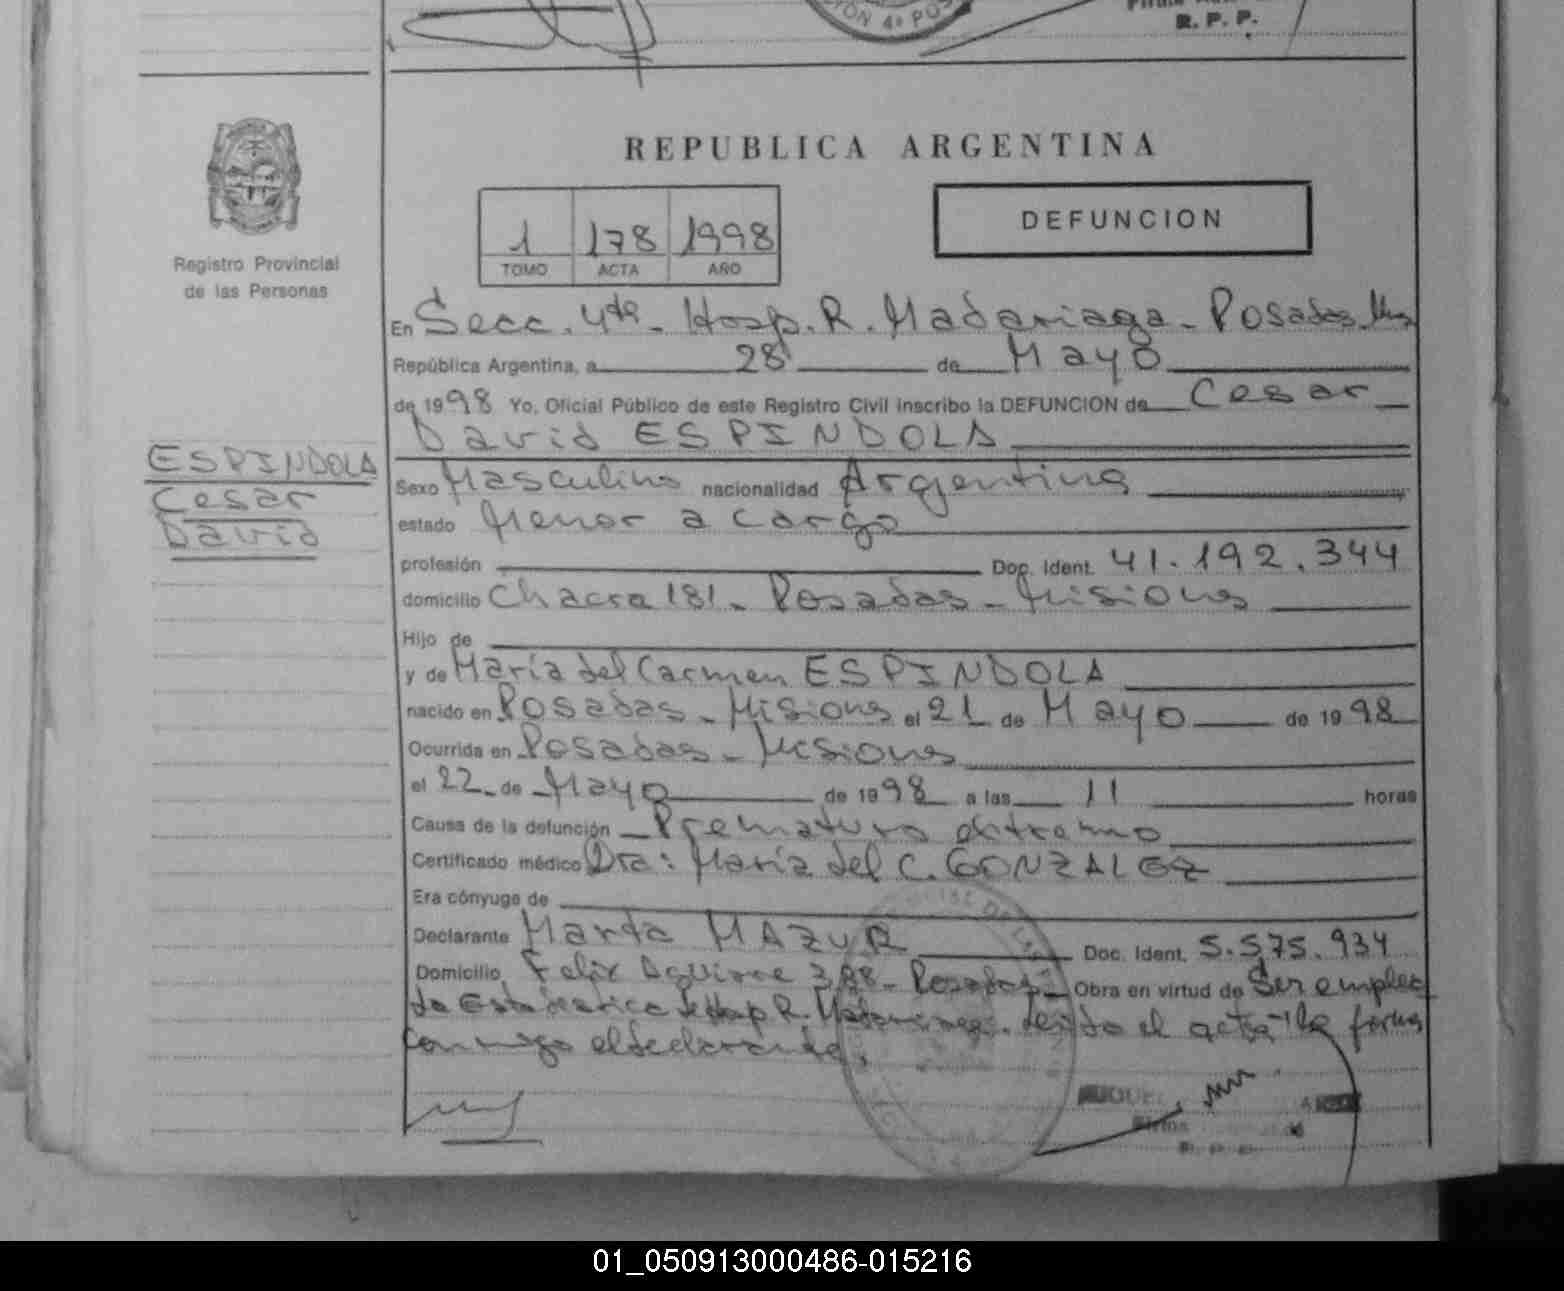 R. P. P.
REPUBLICA ARGENTINA
1 178 1998
TOMO ACTA AÑO
DEFUNCION
Registro Provincial
de las Personas
ESPINDOLA
Cesar
David
En Secc. 4ta - Hosp. R. Madariaga - Posadas Mns
República Argentina, a 28 de Mayo
de 1998 Yo, Oficial Público de este Registro Civil inscribo la DEFUNCION de Cesar
David ESPINDOLA
Sexo Masculino nacionalidad Argentina
estado Menor a cargo
profesión Doc. Ident. 41.192.344
domicilio Chacra 181 - Posadas - Misiones
Hijo de
y de María del Carmen ESPINDOLA
nacido en Posadas - Misiones el 21 de Mayo de 1998
Ocurrida en Posadas - Misiones
el 22 de Mayo de 1998 a las 11 horas
Causa de la defunción Prematuro extremo
Certificado médico Dra: María del C. GONZALEZ
Era cónyuge de
Declarante Marta MAZUR Doc. Ident. 5.575.934
Domicilio Felix Aguirre 388 - Posadas - Obra en virtud de Ser emplea
da Estadistica de Hosp R. Madariaga. Leida el acta la firma
conmigo el declarante.
01_050913000486-015216